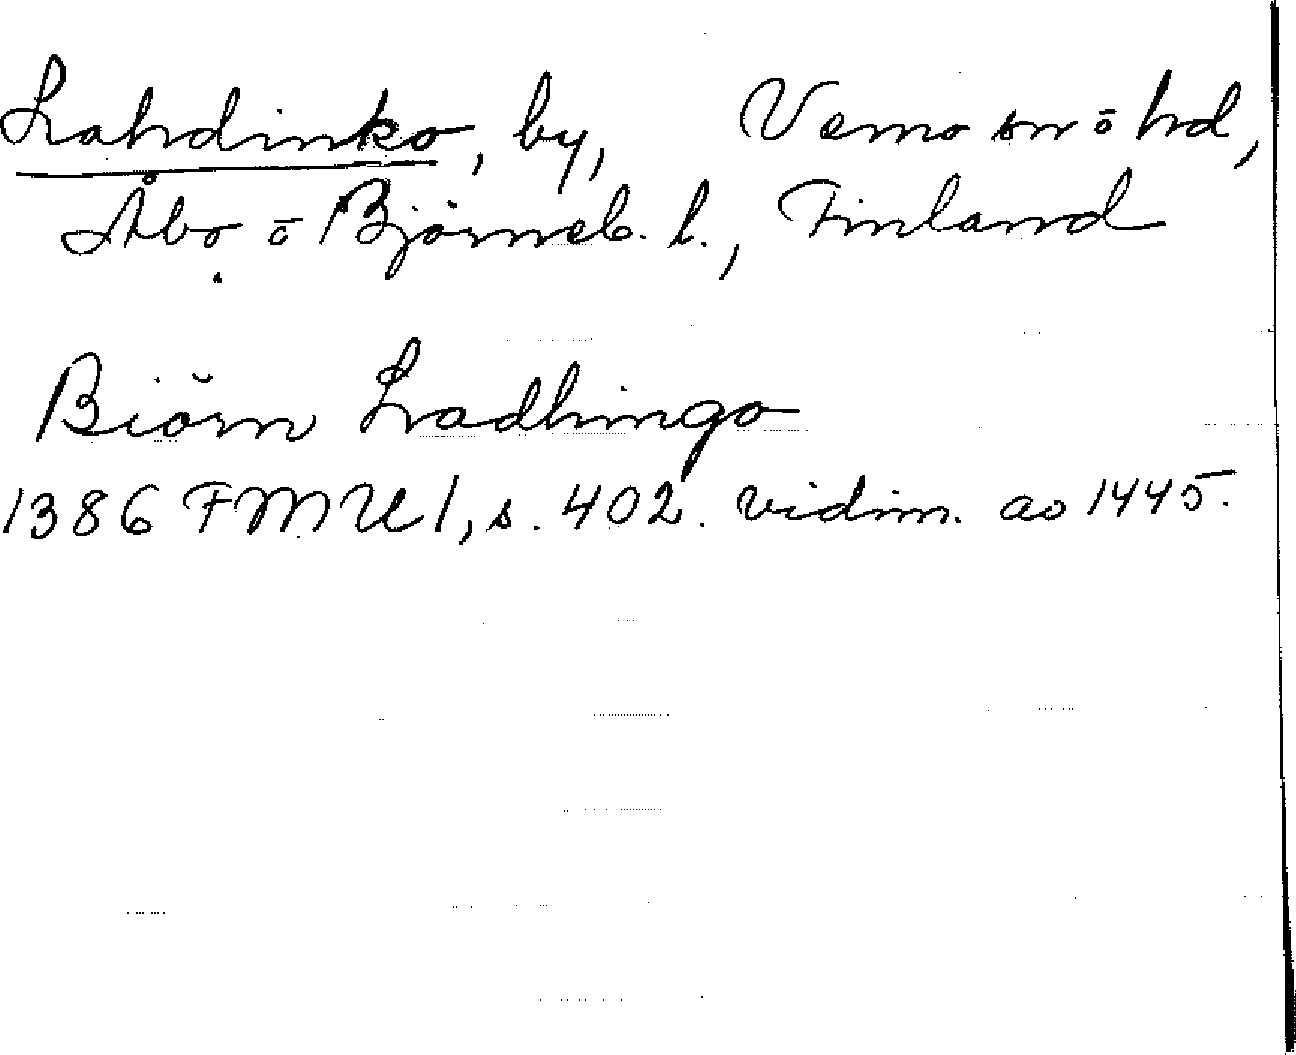 Lahdinko, by, Vemo sn ō hd,
Åbo ō Björneb. l., Finland
Biörn Ladhingo
1386 FMU 1, s. 402. vidim. ao 1445.